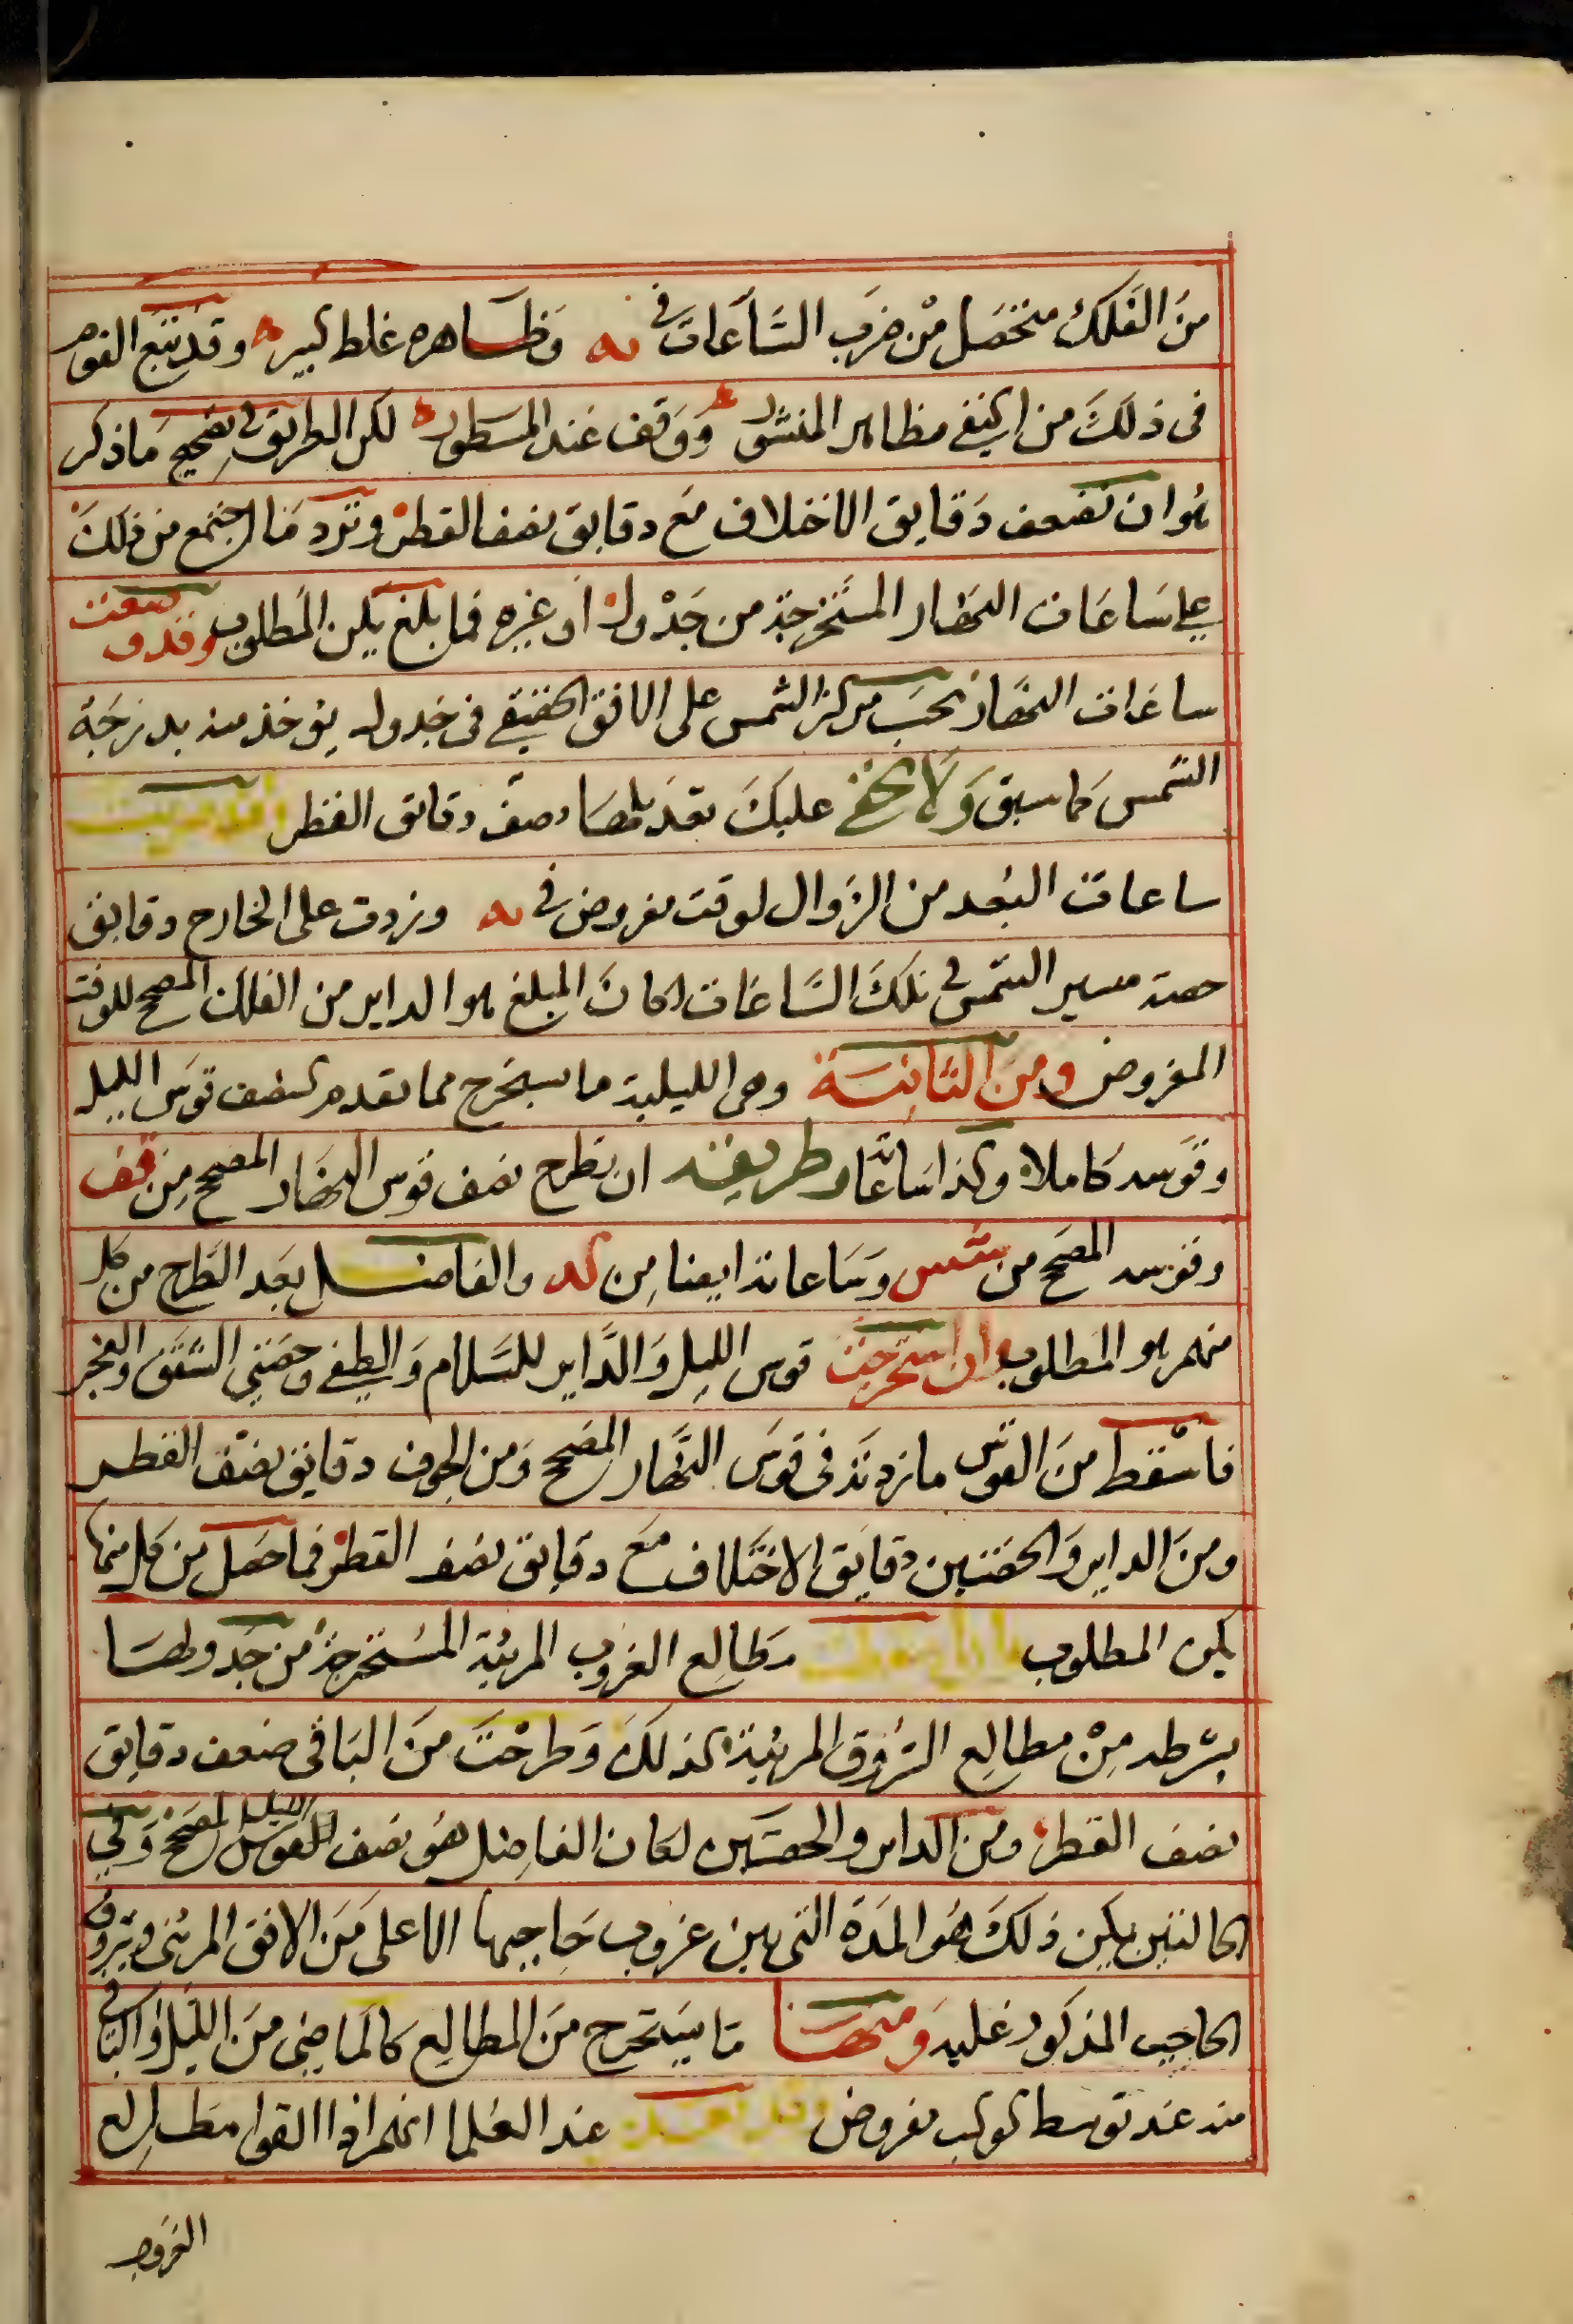 من الفلك متحصل من ضرب الساعات في يه وظاهره غلط كبير وقد تبع القوم
في ذلك من اكتفى بظاهر المنشور ووقف عند المسطور لكن الطريق في تصحيح ما ذكر
هو ان تضعف دقايق الاختلاف مع دقايق نصف القطر وتزد ما اجتمع من ذلك
على ساعات النهار المستخرجة من جدول او غيره فما بلغ يكن المطلوب وقد وضعت
ساعات النهار بحسب مركز الشمس على الافق الحقيقي في جدول يوخذ منه بدرجة
الشمس كما سبق ولا يخفى عليك تعديلها بنصف دقايق القطر
ساعات البعد من الزوال لوقت مفروض في يه وزدت على الخارج دقايق
حصة مسير الشمس في تلك الساعات لكان المبلغ هو الداير من الفلك المصحح للوقت
المفروض ومن الثانية وهي الليلية ما يستخرج مما تقدم كنصف قوس الليل
وقوسه كاملا وكذا ساعاته وطريقه ان تطرح نصف قوس النهار المصحح من قف
وقوسه المصحح من شس وساعاته ايضا من كد والفاضل بعد الطرح من كل
منهم هو المطلوب وان استخرجت قوس الليل والداير للسلام والطفي وحصتي الشفق والفجر
فاسقط من القوس ما زدته في قوس النهار المصحح ومن الجوف دقايق نصف القطر
ومن الداير والحصتين دقايق الاختلاف مع دقايق نصف القطر فما حصل من كل منها
يكن المطلوب مطالع الغروب المرئية المستخرجة من جدولها
بشرطه من مطالع الشروق المرئية كذلك وطرحت من الباقي ضعف دقايق
نصف القطر ومن الداير والحصتين لكان الفاضل هو نصف القوس الليل المصحح وفي
الحالتين يكن ذلك هو المدة التي بين غروب حاجبها الاعلى من الافق المرئي وشروق
الحاجب المذكور عليه ومنها ما يستخرج من المطالع كالماضي من الليل والباقي
منه عند توسط كوكب مفروض وقد تعين عند العلما انهم اذا القوا مطالع
الغروب